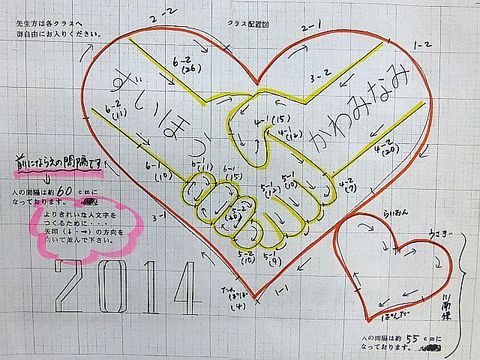 先生方は各クラスへ
御自由にお入りください。
クラス配置図
2-2
2-1
1-2
6-2
(26)
3-2
ずいほう
かわみなみ
6-2
(11)
4-1 (15)
4-1 (12)
4-2
(20)
6-1
(10)
6-1
(11)
6-1
(15)
5-1
(12)
5-1
(10)
4-2
(9)
前にならえの間隔です
人の間隔は約 60 cmに
なっております。
よりきれいな人文字を
つくるために・・・
矢印(↓・→)の方向を
向いて並んで下さい。
3-1
5-2
(10)
5-1
(9)
1-1
2014
たんぽぽ
(4)
らいおん
うさぎ
ぱんだ
川南保
人の間隔は約 55 cmに
なっております。